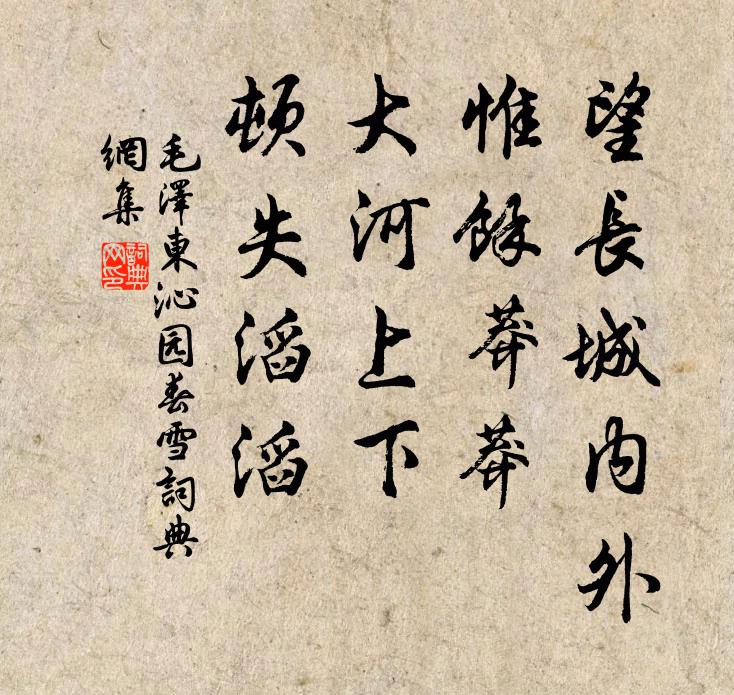 望長城内外
惟餘莽莽
大河上下
頓失滔滔
毛澤東沁园春雪詞典
網集
詞典网印